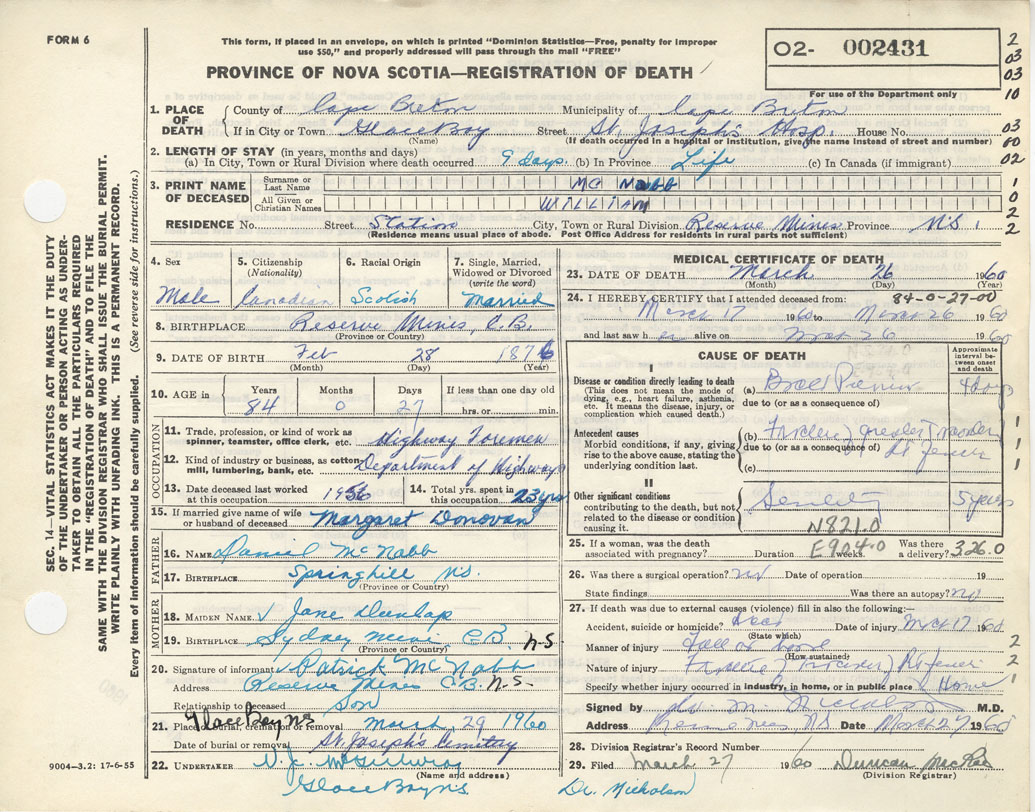 FORM 6
This form, if placed in an envelope, on which is printed "Dominion Statistics—Free, penalty for improper
use $50," and properly addressed will pass through the mail "FREE"
PROVINCE OF NOVA SCOTIA—REGISTRATION OF DEATH
O2- 002431
For use of the Department only
2
03
03
10
03
00
02
1
0
2
2
1. PLACE OF DEATH County of Cape Breton Municipality of Cape Breton
If in City or Town Glace Bay Street St. Joseph's Hosp. House No.
(Name) (If death occurred in a hospital or institution, give the name instead of street and number)
2. LENGTH OF STAY (in years, months and days)
(a) In City, Town or Rural Division where death occurred 9 days. (b) In Province Life (c) In Canada (if immigrant)
3. PRINT NAME OF DECEASED Surname or Last Name MC NABB
All Given or Christian Names WILLIAM
RESIDENCE No. Street Station City, Town or Rural Division Reserve Mines Province NS
(Residence means usual place of abode. Post Office Address for residents in rural parts not sufficient)
4. Sex Male
5. Citizenship (Nationality) Canadian
6. Racial Origin Scotish
7. Single, Married, Widowed or Divorced (write the word) Married
8. BIRTHPLACE Reserve Mines, C.B.
(Province or Country)
9. DATE OF BIRTH Feb 28 1876
(Month) (Day) (Year)
10. AGE in Years 84 Months 0 Days 27 If less than one day old hrs. or min.
OCCUPATION
11. Trade, profession, or kind of work as spinner, teamster, office clerk, etc. Highway Foremen
12. Kind of industry or business, as cotton mill, lumbering, bank, etc. Department of Highways
13. Date deceased last worked at this occupation 1956
14. Total yrs. spent in this occupation 23 yrs
15. If married give name of wife or husband of deceased Margaret Donovan
FATHER
16. NAME Daniel McNabb
17. BIRTHPLACE Springhill N.S.
(Province or Country)
MOTHER
18. MAIDEN NAME Jane Dunlap
19. BIRTHPLACE Sydney Mines C.B. N-S
(Province or Country)
20. Signature of informant Patrick McNabb
Address Reserve Mines C.B. N-S-
Relationship to deceased Son
21. Place of burial, cremation or removal Glace Bay NS March 29 1960
Date of burial or removal St. Joseph's Cemetry
22. UNDERTAKER
(Name and address)
Glace Bay N.S.
9004—3.2: 17-6-55
MEDICAL CERTIFICATE OF DEATH
23. DATE OF DEATH March 26 1960
(Month) (Day) (Year)
84-0-27-00
24. I HEREBY CERTIFY that I attended deceased from:
March 17 1960 to March 26 1960
and last saw h alive on March 26 1960
CAUSE OF DEATH
Approximate interval between onset and death
I
Disease or condition directly leading to death
(This does not mean the mode of dying, e.g., heart failure, asthenia, etc. It means the disease, injury, or complication which caused death.)
(a)
due to (or as a consequence of)
Antecedent causes
Morbid conditions, if any, giving rise to the above cause, stating the underlying condition last.
(b)
due to (or as a consequence of)
(c)
II
Other significant conditions
contributing to the death, but not related to the disease or condition causing it.
Senility 5 years
N821.0
25. If a woman, was the death associated with pregnancy? Duration weeks. Was there a delivery?
E904.0
326.0
26. Was there a surgical operation? Date of operation 19
State findings Was there an autopsy?
27. If death was due to external causes (violence) fill in also the following:—
Accident, suicide or homicide? Date of injury March 17 1960
(State which)
Manner of injury
(How sustained)
Nature of injury
Specify whether injury occurred in industry, in home, or in public place Home
Signed by M.D.
Address Reserve Mines NS Date March 27 1960
28. Division Registrar's Record Number
29. Filed March 27 1960 Duncan
(Division Registrar)
Dr. Nicholson
SEC. 14—VITAL STATISTICS ACT MAKES IT THE DUTY
OF THE UNDERTAKER OR PERSON ACTING AS UNDER-
TAKER TO OBTAIN ALL THE PARTICULARS REQUIRED
IN THE "REGISTRATION OF DEATH" AND TO FILE THE
SAME WITH THE DIVISION REGISTRAR WHO SHALL ISSUE THE BURIAL PERMIT.
WRITE PLAINLY WITH UNFADING INK. THIS IS A PERMANENT RECORD.
Every item of information should be carefully supplied. (See reverse side for instructions.)